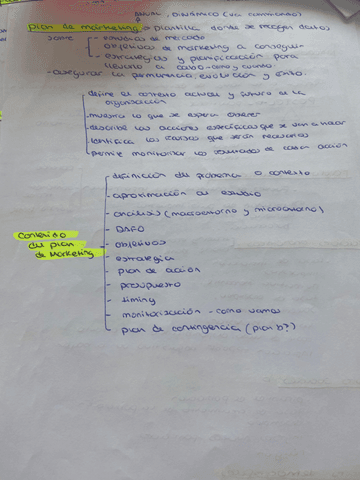 ANUAL, DINÁMICO (va cambiando)
plan de marketing → plantilla donde se recogen datos
sobre - variables de mercado
- objetivos de marketing a conseguir
- estrategias y planificación para
llevarlo a cabo - como y cuando
- asegurar la permanencia, evolución y éxito.
define el entorno actual y futuro de la
organización
- muestra lo que se espera obtener
- describe las acciones específicas que se van a hacer
- identifica los recursos que serán necesarios
- permite monitorizar los resultados de cada acción
Contenido
del plan
de Marketing
- definición del problema o contexto
- aproximación al estudio
- análisis (macroentorno y microentorno)
- DAFO
- objetivos
- estrategia
- plan de acción
- presupuesto
- timing
- monitorización - como vamos
- plan de contingencia (plan b?)